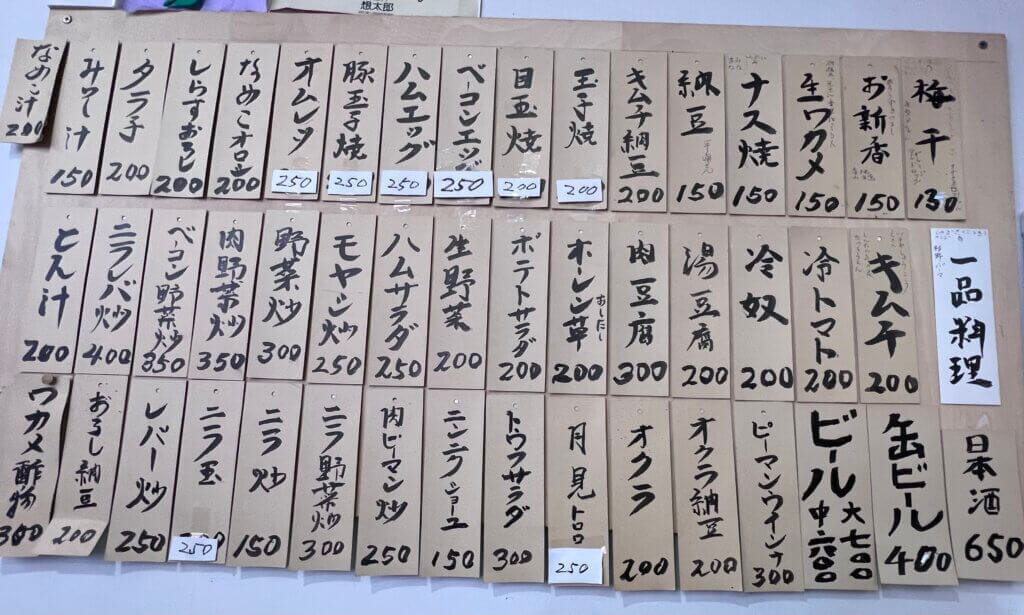 想太郎
一品料理
梅干 130
お新香 150
生ワカメ 150
ナス焼 150
納豆 150
キムチ納豆 200
玉子焼 200
目玉焼 200
ベーコンエッグ 250
ハムエッグ 250
豚玉子焼 250
オムレツ 250
なめこオロシ 200
しらすおろし 200
タラ子 200
みそ汁 150
なめこ汁 200
キムチ 200
冷トマト 200
冷奴 200
湯豆腐 200
肉豆腐 300
オーレン草 おしたし 200
ポテトサラダ 200
生野菜 200
ハムサラダ 250
モヤシ炒 250
野菜炒 300
肉野菜炒 350
ベーコン野菜炒 350
ニラレバ炒 400
とん汁 200
日本酒 650
缶ビール 400
ビール大七〇〇
中六〇〇
ピーマンウインナ 300
オクラ納豆 200
オクラ 200
月見トロロ 250
トウフサラダ 300
ニンニクショーユ 150
肉ピーマン炒 250
ニラ野菜炒 300
ニラ炒 150
ニラ玉 250
レバー炒 250
おろし納豆 200
ワカメ酢物 300